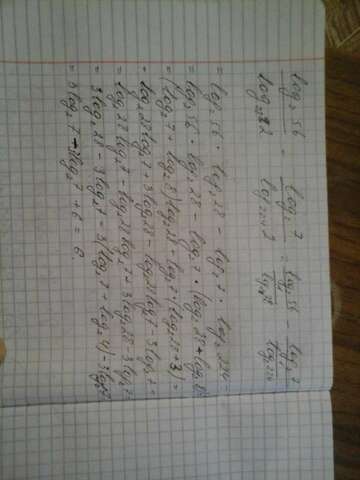 log₂56 / log₂₈2 - log₂7 / log₂₂₄2 = log₂56 / 1/log₂28 - log₂7 / 1/log₂224
= log₂56 · log₂28 - log₂7 · log₂224 =
= log₂56 · log₂28 - log₂7 · (log₂28 + log₂8) =
= (log₂7 + log₂8) log₂28 - log₂7 (log₂28 + 3) =
= log₂28 log₂7 + 3log₂28 - log₂28 log₂7 - 3log₂7 =
= log₂28 log₂7 - log₂28 log₂7 + 3log₂28 - 3log₂7
= 3log₂28 - 3log₂7 = 3(log₂7 + log₂4) - 3log₂7
= 3log₂7 - 3log₂7 + 6 = 6.